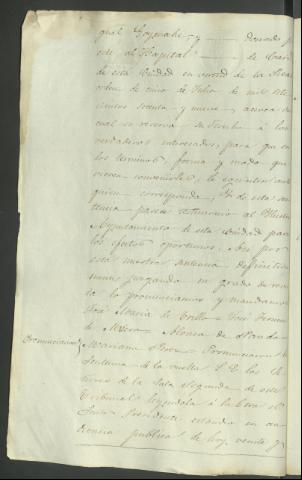 y donado p
este al Hospital de Cari
de esta Ciudad en virtud de la Real
orden de cinco de Julio de mil sete
cientos sesenta y nueve, acerca
cual se reserva su derecho á los
verdaderos interesados, para que en
los terminos, forma y modo que
vieren convenirles, le egerciten
quien corresponda. Y de esta sen
tencia pasese testimonio al Ilustre
Ayuntamiento de esta Ciudad para
los efectos oportunos. Asi por
esta nuestra sentencia definitiva
mente juzgando en grado de revis
ta lo pronunciamos y mandamos
José Maria de Trillo José
de Rivera Alonso de
Pronunciam.
Mariano Pronunciaron la
Sentencia de la vuelta S.S. los
de la Sala Segunda de este
Tribunal leyendola á la letra el
Señor Presidente estando en au
diencia publica de hoy, veinte y